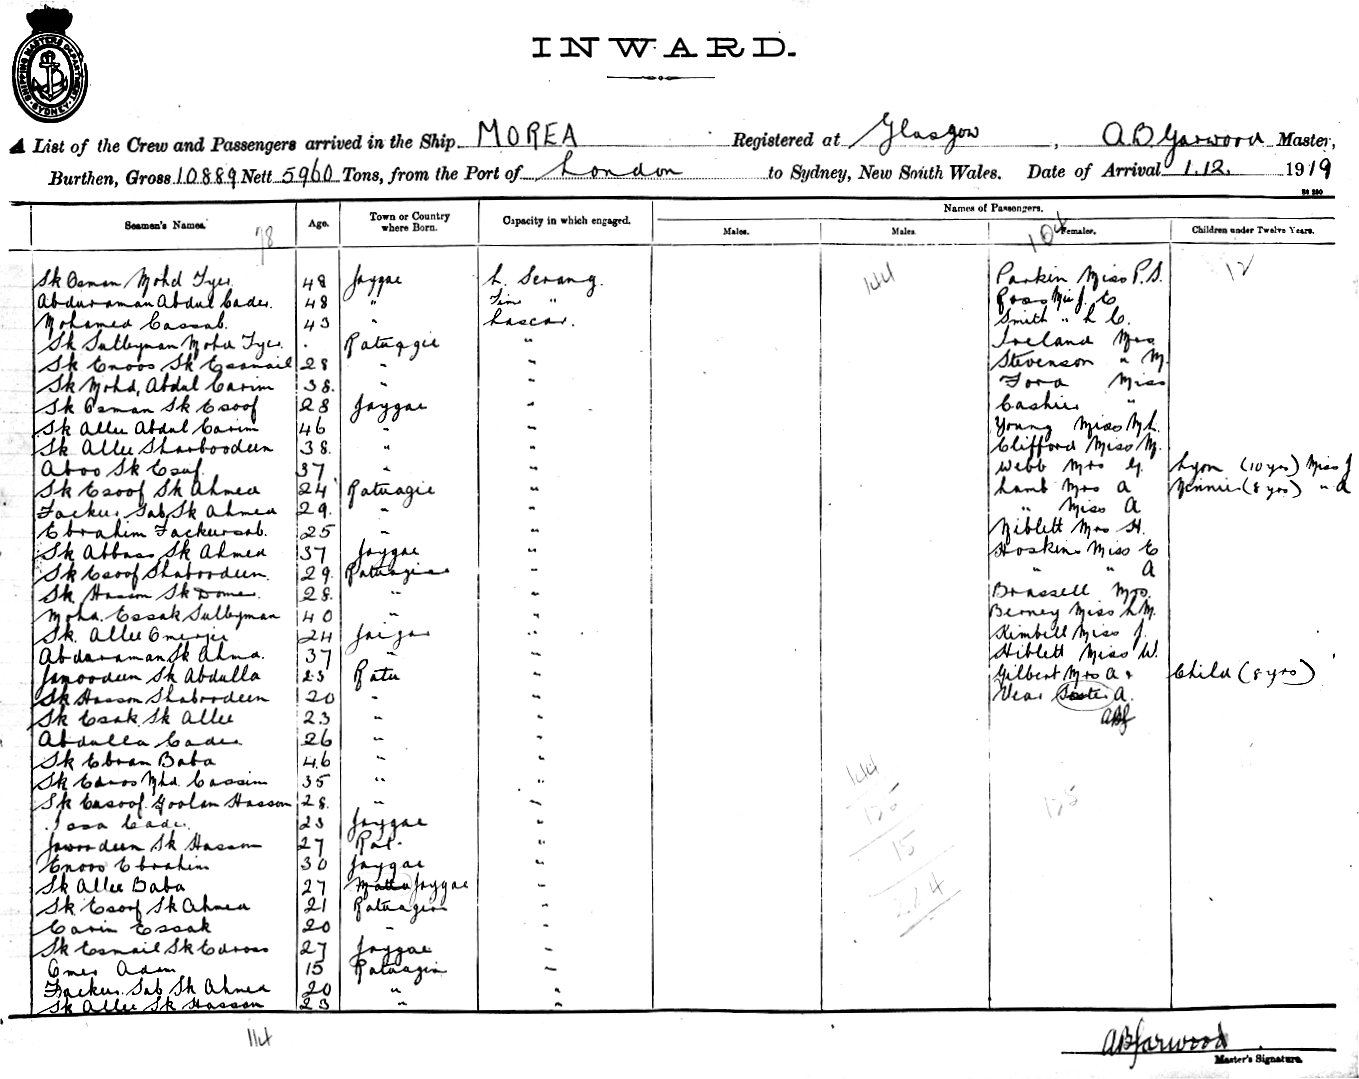 SHIPPING MASTERS DEPARTMENT SYDNEY
INWARD.
List of the Crew and Passengers arrived in the Ship MOREA Registered at Glasgow, A B Garwood Master,
Burthen, Gross 10889 Nett 5960 Tons, from the Port of London to Sydney, New South Wales. Date of Arrival 1.12. 1919
Seamen's Names. Age. Town or Country where Born. Capacity in which engaged. Names of Passengers.
Males. Males. Females. Children under Twelve Years.
78 104 12
144
Sk Osman Mohd Tyer 48 Jaygae L. Serang. Parkin Miss P.S.
Abduraman Abdul Cader. 48 " " Ross Miss J. C
Mohamed Cassab. 43 " Lascar. Smith " L C.
Sk Sulleyman Mohd Tyer. . " Ireland Mrs
Sk Enoos Sk Esamail 28 " " Stevenson " M.
Sk Mohd, Abdul Carim 38. " " Miss
Sk Osman Sk Esoof 28 Jaygae " "
Sk Allee Abdul Carim 46 " " Young Miss M L.
Sk Allee Sharboodeen 38. " " Clifford Miss M.
Aboo Sk Esuf. 37 " " Webb Mrs G. Lyon (10 yrs) Miss J
Sk Esoof Sk Ahmed 24 Ratnagie " Lamb Mrs A (8 yrs) " A
Sk Ahmed 29. " " " Miss A
Ebrahim Fackersab. 25 " " Niblett Mrs H.
Sk Abbass Sk Ahmed 37 Jaygae " Hoskins Miss E
Sk Esoof Shaboodeen. 29. " " " A
Sk Hassan Sk 28. " " Brassell Mrs.
Mohd. Essak Sulleyman 40 " " Berney Miss L.M.
Sk. Allee 24 " Kimbell Miss J.
Abduraman Sk Ahmd. 37 " " Hiblett Miss W.
Sk Abdulla 23 Ratn " Gilbert Mrs A & Child (8 yrs)
Sk Hassan Shaboodeen 20 " " Vear Sister A.
Sk Esak Sk Allee 23 " " ABG
Abdulla Cader. 26 " "
Sk Ebram Baba 46 " "
Sk Mhd Cassim 35 " " 144
Sk Goolam Hassan 28. " " 125 125
Issa Cader. 23 Jaygae "
Sk Hassan 27 Rat. " 15
Enoos Ebrahim 30 Jaygae "
Sk Allee Baba 27 Jaygae " 284
Sk. Esoof Sk Ahmed 21 "
Carim Essak 20 " "
Sk Esmail Sk Edroos 27 Jaygae "
Omer Adam 15 "
Sk Ahmed 20 " "
Sk Allee Sk Hassan 23 " "
114
ABGarwood
Master's Signature.